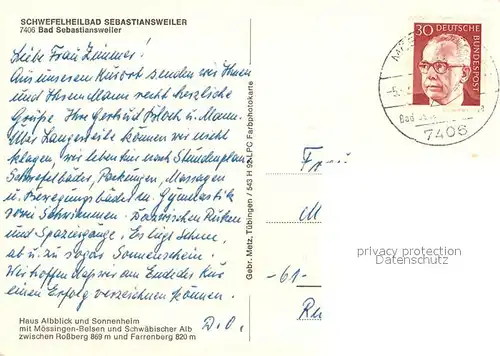 SCHWEFELHEILBAD SEBASTIANSWEILER
7406 Bad Sebastiansweiler
Liebe Frau Zimmer!
Aus unserem Kurort senden wir Ihnen
und Ihrem Mann recht herzliche
Grüße Ihre Gertrud Bloch u. Mann.
Über Langeweile können wir nicht
klagen, wir leben tun nach Stundenplan
Schwefelbäder, Packungen, Massagen
u. Bewegungsbäder m. Gymnastik
sowie Schwimmen. Dazwischen Ruhen
und Spaziergänge. Es liegt Schnee,
ab u. zu sogar Sonnenschein.
Wir hoffen daß wir am Ende der Kur
einen Erfolg verzeichnen können.
D. O.
Haus Albblick und Sonnenheim
mit Mössingen-Belsen und Schwäbischer Alb
zwischen Roßberg 869 m und Farrenberg 820 m
Gebr. Metz, Tübingen / 543 H 92 LPC Farbphotokarte
30 DEUTSCHE
BUNDESPOST
Bad
7406
Frau
M
-61-
privacy protection
Datenschutz